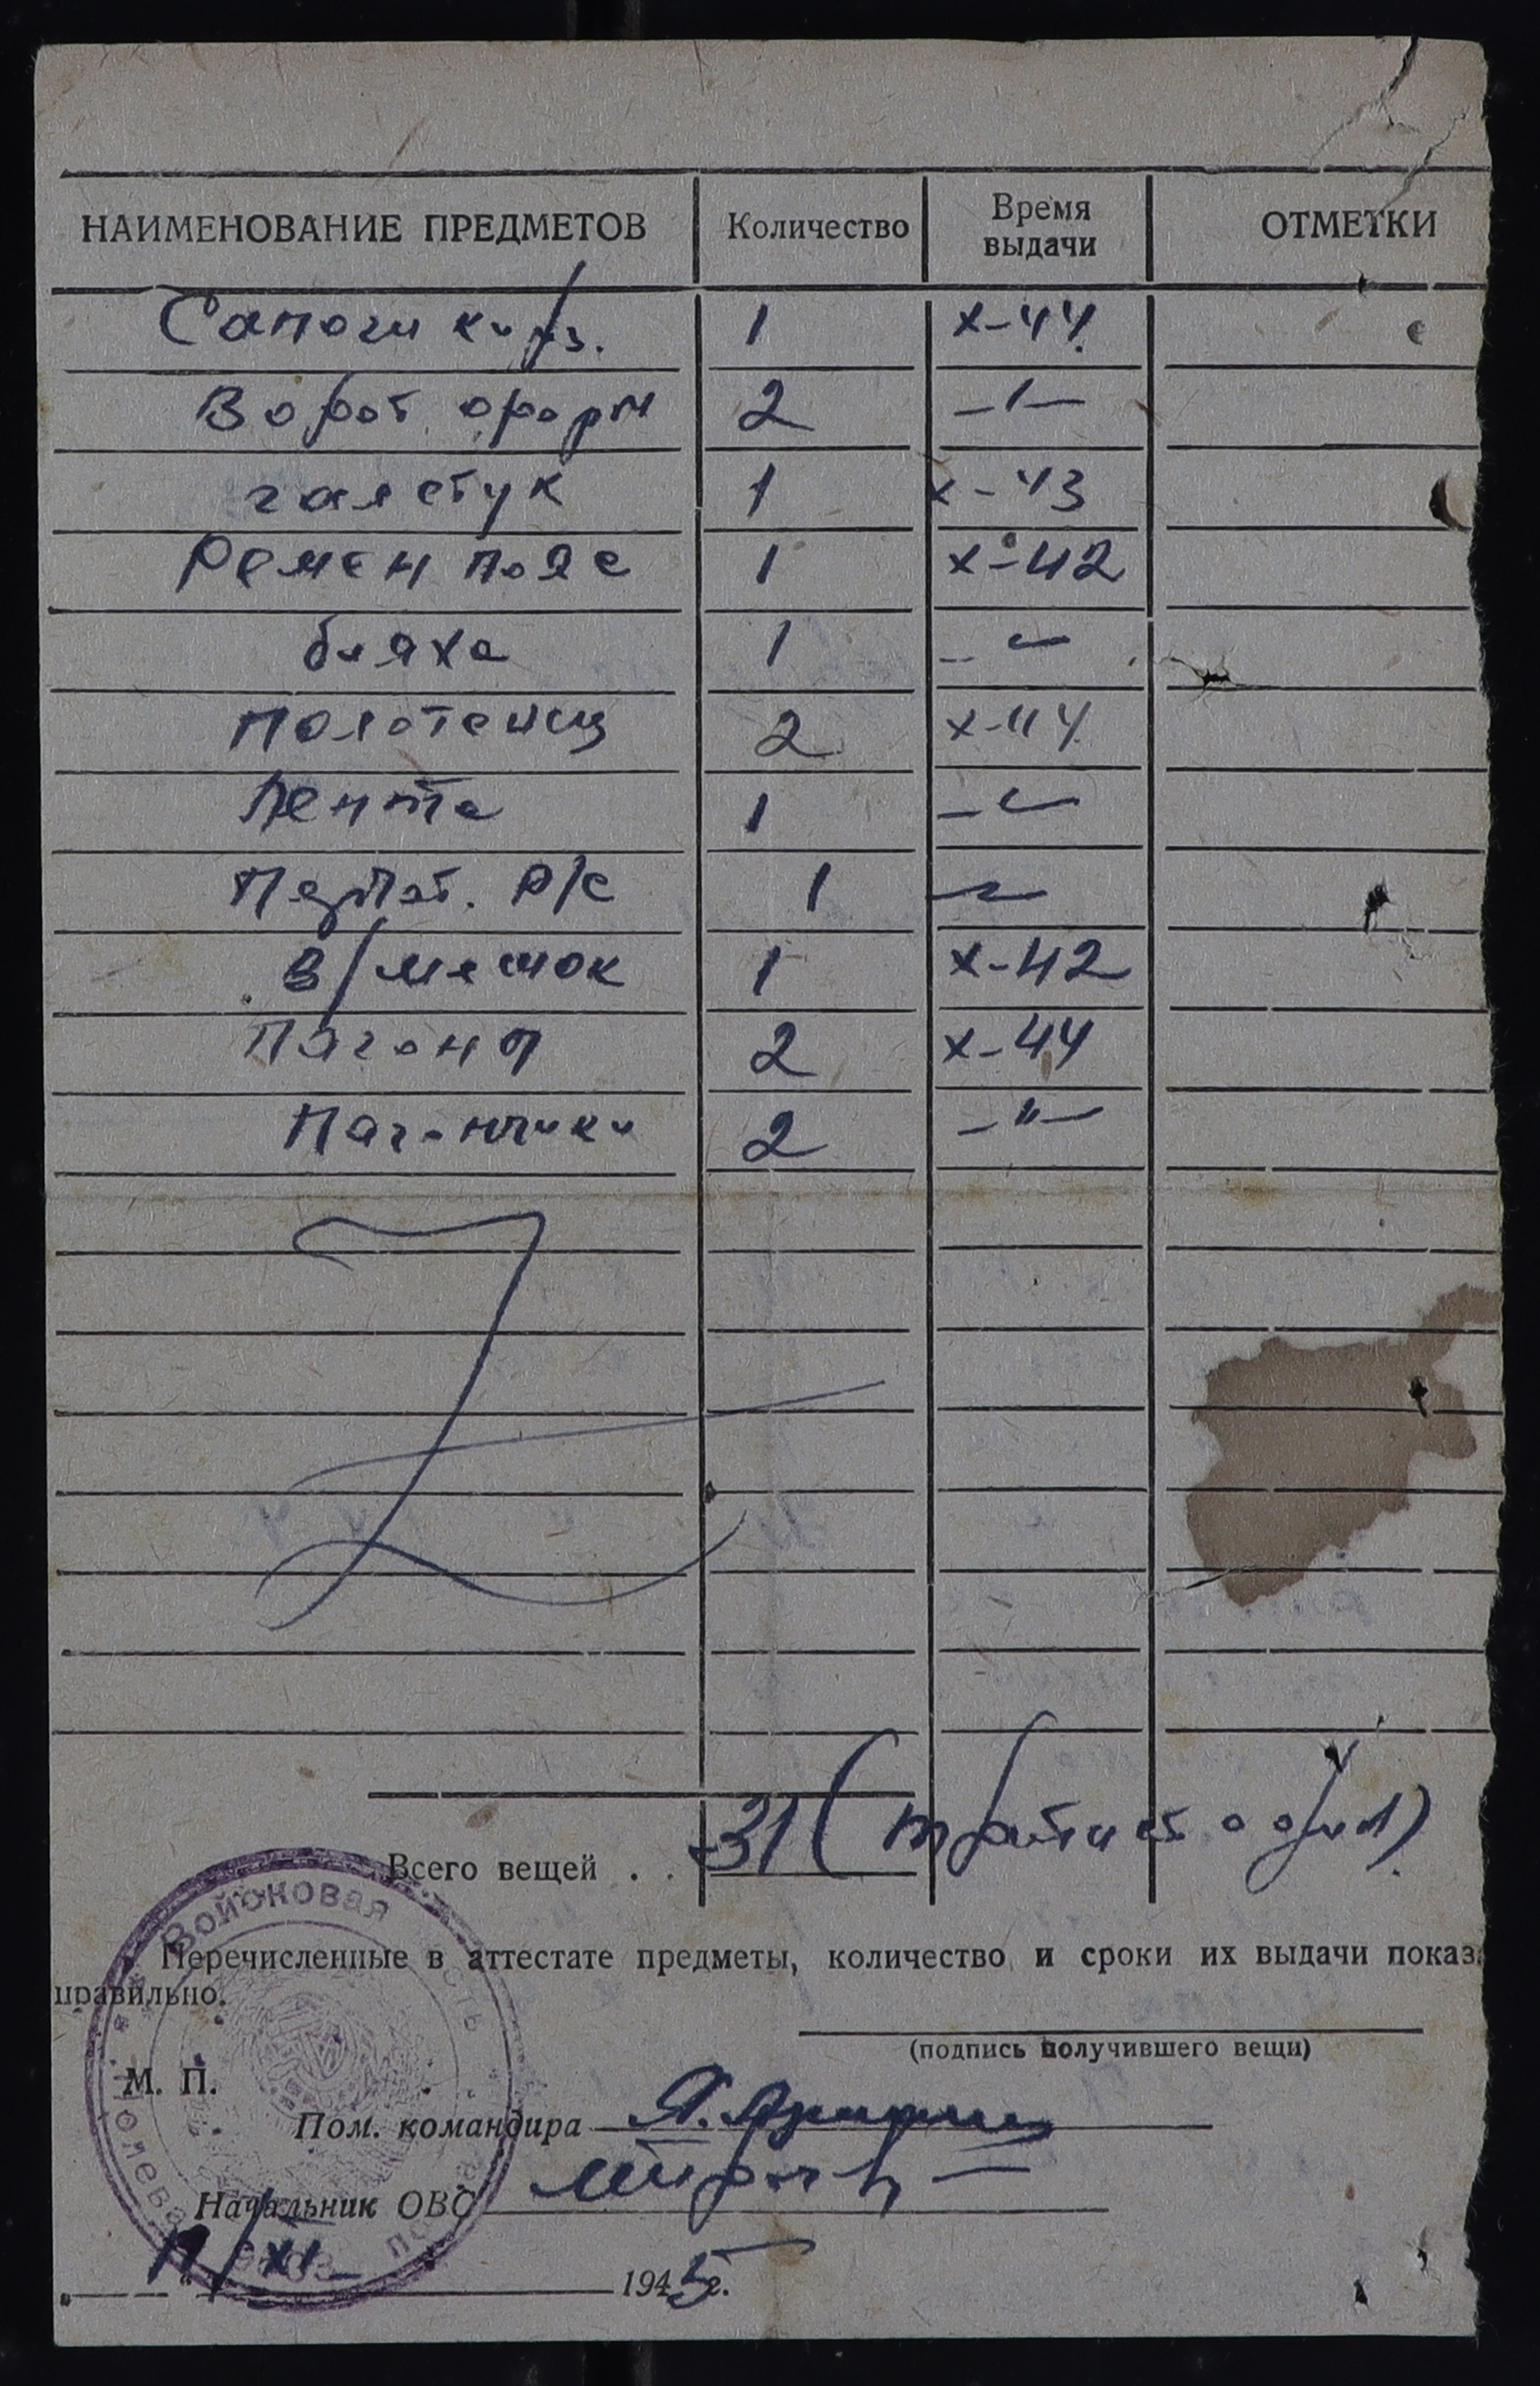 НАИМЕНОВАНИЕ ПРЕДМЕТОВ Количество Время выдачи ОТМЕТКИ
Сапоги кирз. 1 X-44.
Ворот. форм 2 -"-
галстук 1 X-43
Ремен пояс 1 X-42
бляха 1 -"-
Полотенец 2 X-44.
Лента 1 -"-
Р/С 1 -"-
В/мешок 1 X-42
Пагоны 2 X-44
Пагончики 2 -"-
Всего вещей . . 31 (тридцать один)
Перечисленные в аттестате предметы, количество и сроки их выдачи показ
правильно.
(подпись получившего вещи)
М. П.
Пом. командира
Начальник ОВС
XI 1945 г.
Войсковая часть
Полевая